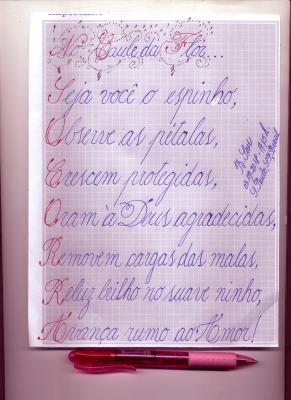 No Caule da Flor...
Seja você o espinho,
Observe as pétalas,
Crescem protegidas,
Oram à Deus agradecidas,
Removem cargas das malas,
Reluz brilho no suave ninho,
Avança rumo ao Amor!